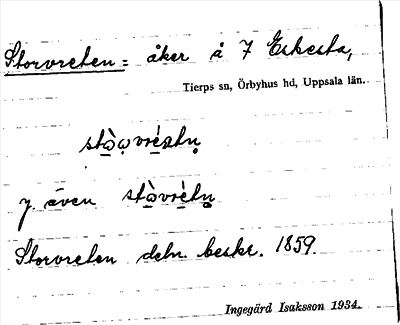 Storvreten = åker å 7 Eskesta,
Tierps sn, Örbyhus hd, Uppsala län.
stò̱ǫvré̱atn̥
7 även stò̱vrè̱tn̥
Storvreten deln. beskr. 1859.
Ingegärd Isaksson 1934.